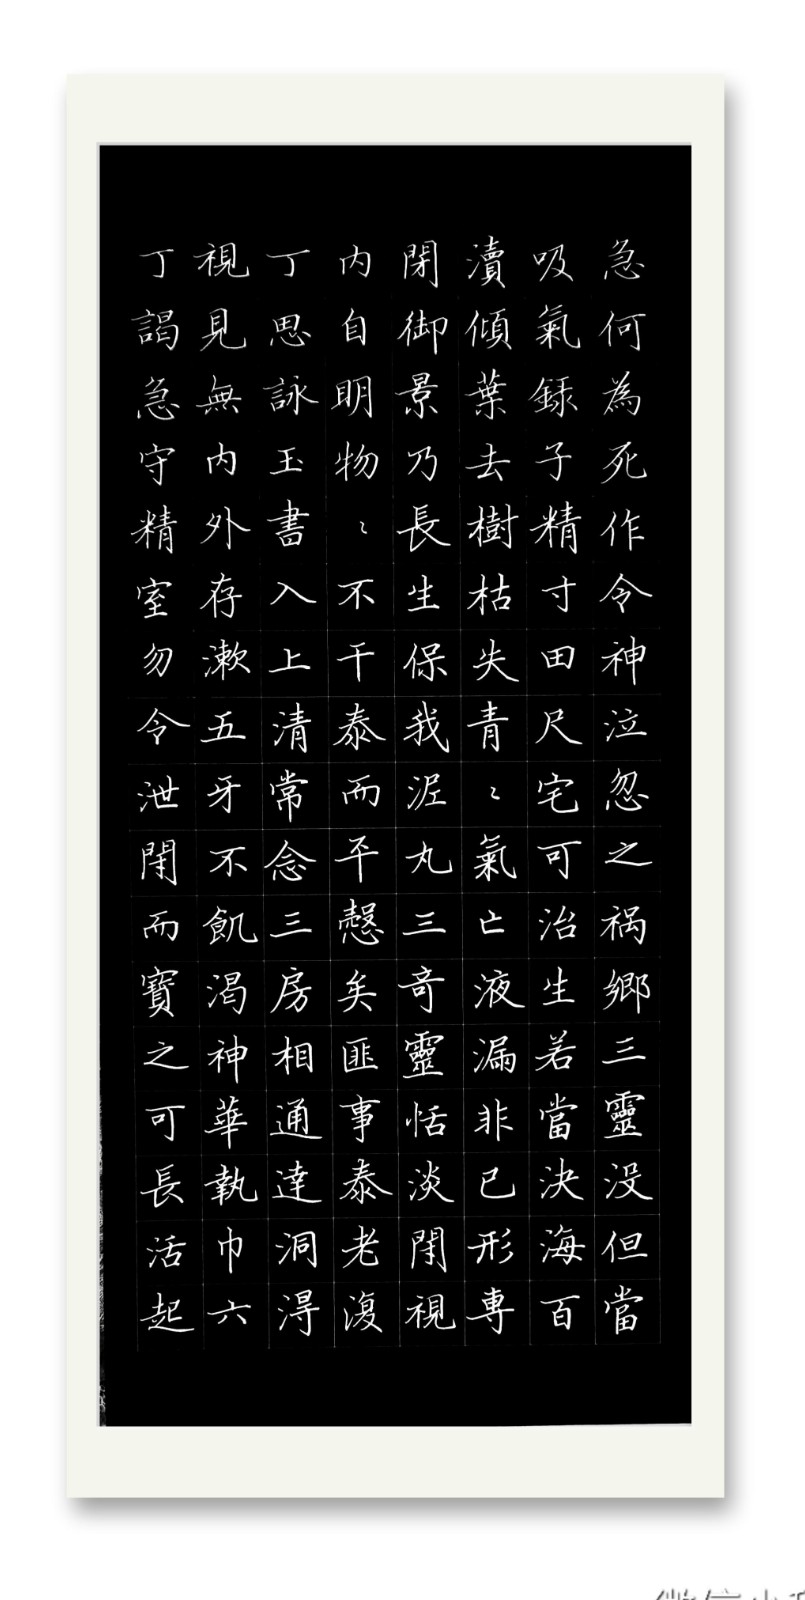 急何為死作令神泣忽之祸鄉三靈没但當
吸氣録子精寸田尺宅可治生若當決海百
瀆傾葉去樹枯失青〻氣亡液漏非已形專
閉御景乃長生保我泥丸三奇靈恬淡閉視
内自明物〻不干泰而平愨矣匪事泰老復
丁思詠玉書入上清常念三房相通達洞得
視見無内外存漱五牙不飢渴神華執巾六
丁謁急守精室勿令泄閉而寶之可長活起